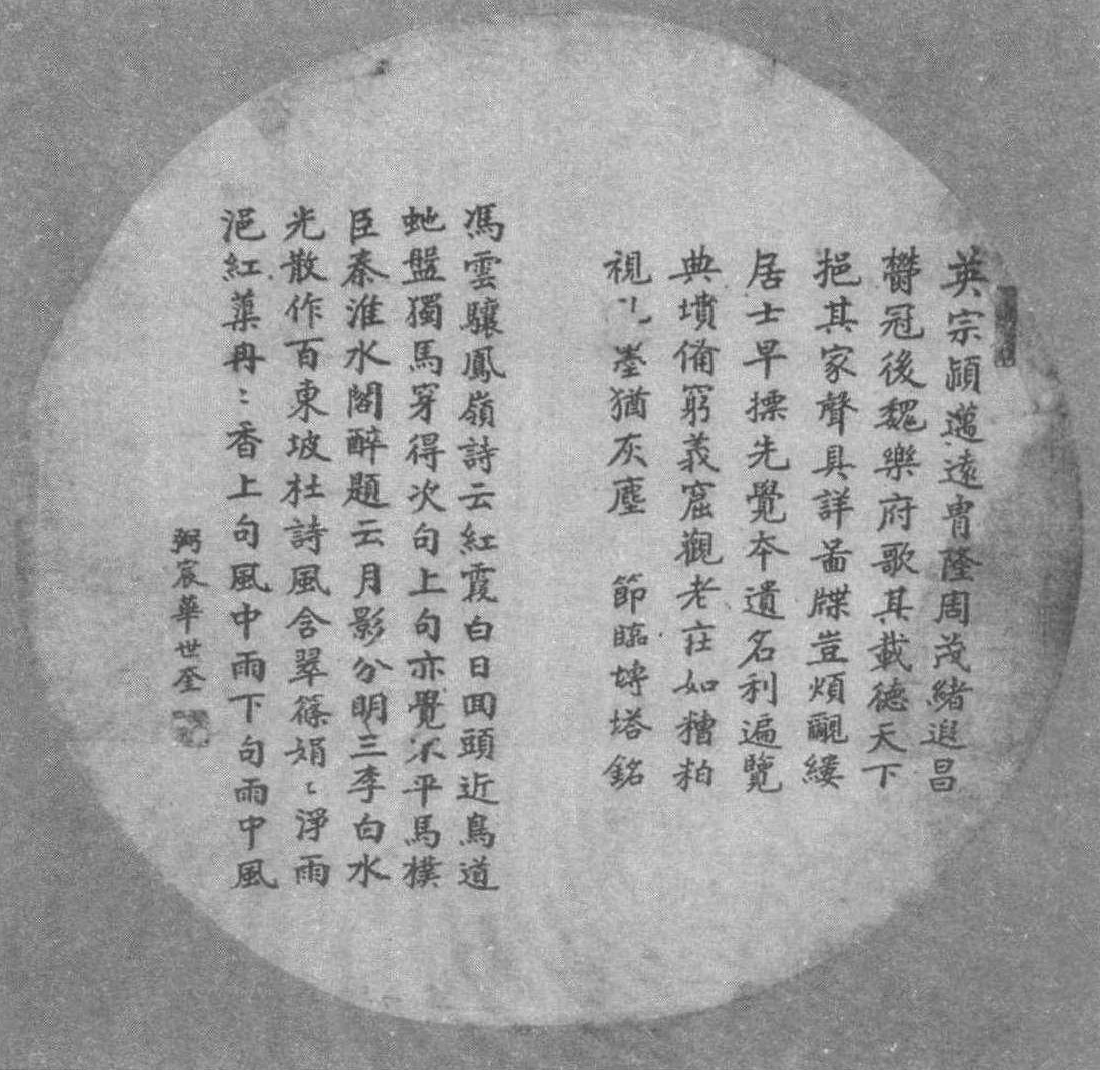 英宗穎邁遠胄隆周茂緒遐昌
鬱冠後魏樂府歌其載德天下
挹其家聲具詳啚牒豈煩覼縷
居士早摽先覺夲遺名利遍覽
典墳備窮義窟觀老莊如糟粕
視墨猶灰塵 節臨塼塔銘
馮雲驤鳳嶺詩云紅霞白日回頭近鳥道
虵盤獨馬穿得次句上句亦覺不平馬樸
臣秦淮水閣醉題云月影分明三李白水
光散作百東坡杜詩風含翠篠娟〻淨雨
浥紅蕖冉〻香上句風中雨下句雨中風
弼宸華世奎